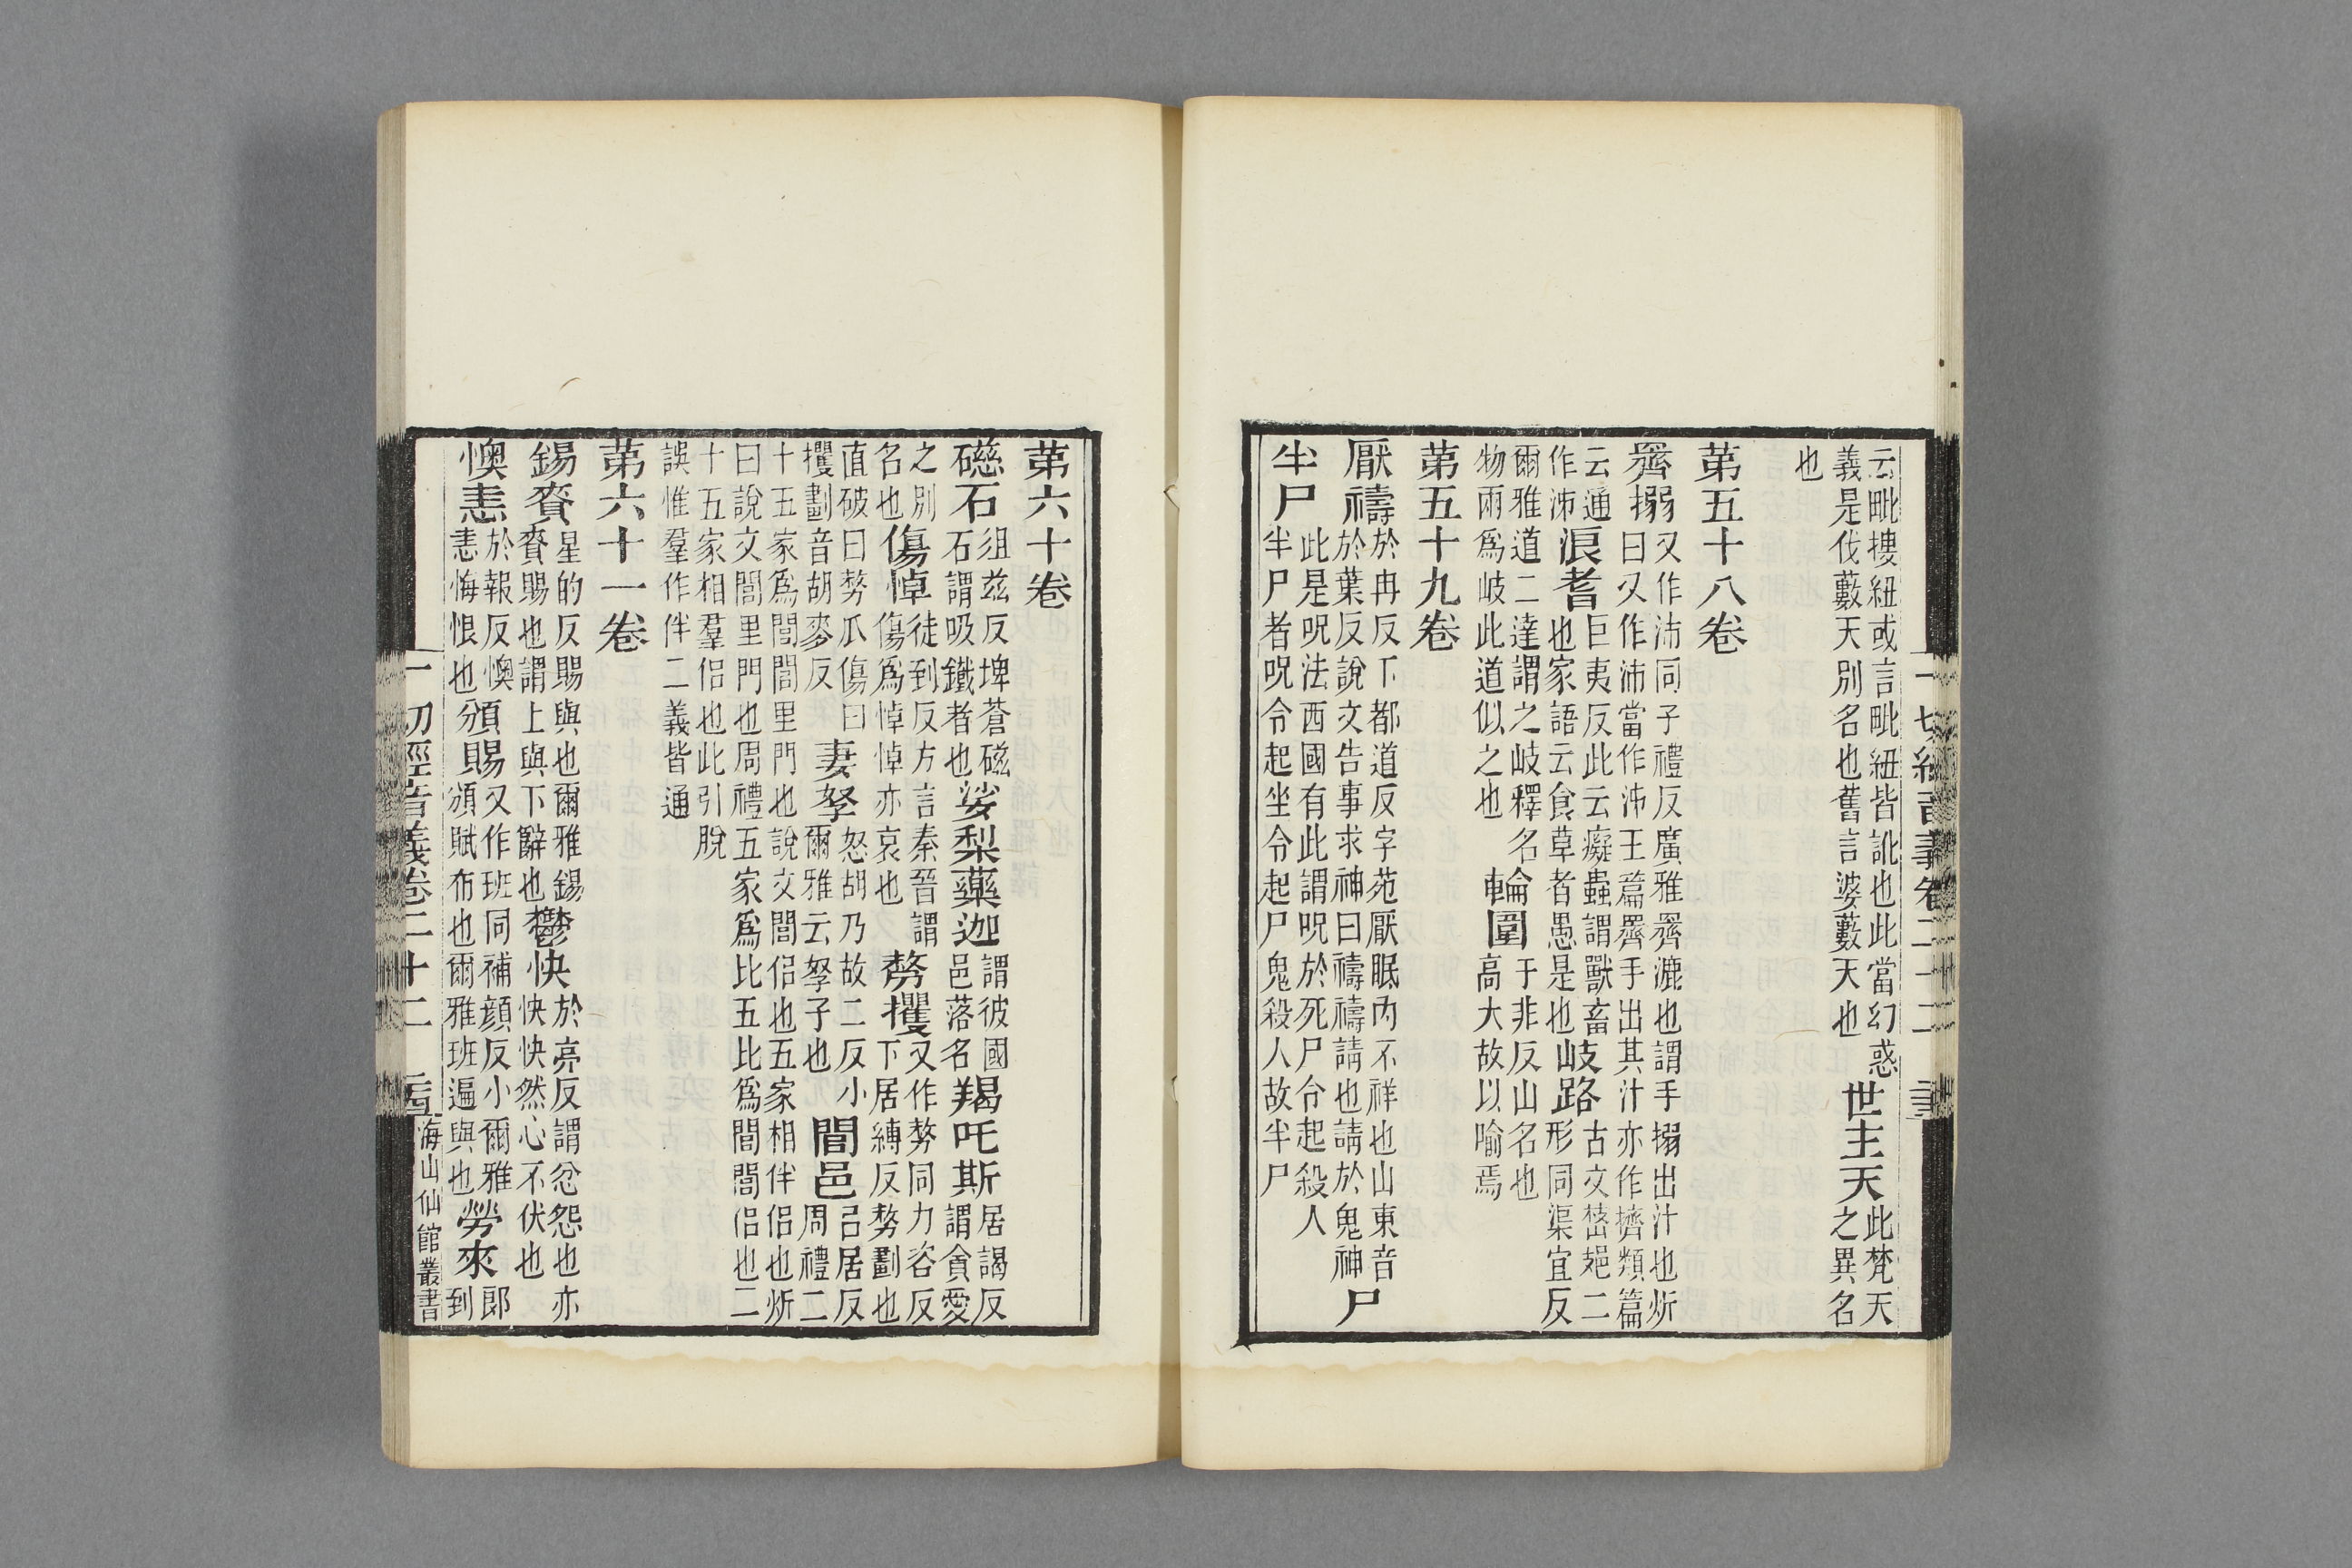 云毗摟紐或言毗紐皆訛也此當幻惑
義是伐藪天別名也舊言婆藪天也
世主天
此梵天
之異名
也
第五十八卷
擠搦
又作泲同子禮反廣雅擠漉也謂手搦出汁也炘
曰又作泲當作沛王篇擠手出其汁亦作擠類篇
云通
作沛
浪耆
巨夷反此云癡蟲謂獸畜
也家語云食草者愚是也
岐路
古文
形同渠宜反
二
爾雅道二達謂之岐釋名
物兩爲岐此道似之也
輪圍
于非反山名也
高大故以喻焉
第五十九卷
厭禱
於冉反下都道反字苑厭眠內不祥也山東音
於葉反說文告事求神曰禱禱請也請於鬼神
尸
半尸
此是呪法西國有此謂呪於死尸令起殺人
半尸者呪令起坐令起尸鬼殺人故半尸
一切經音義卷二十二
第六十卷
礠石
徂茲反埤蒼磁
石謂吸鐵者也
娑梨藥迦
謂彼國
邑落名
羯吒斯
居謁反
謂貪愛
之別
名也
傷悼
徒到反方言秦晉謂
傷爲悼悼亦哀也
剺攫
又作剺同力咨反
下居縛反剺劃也
直破曰剺爪傷曰
攫劃音胡麥反
妻孥
怒胡乃故二反小
爾雅云孥子也
閭邑
呂居反
周禮二
十五家爲閭閭里門也說文閭侶也五家相伴侶也炘
曰說文閭里門也周禮五家爲比五比爲閭閭侶也二
十五家相羣侶也此引脫
誤惟羣作伴二義皆通
第六十一卷
錫賚
星的反賜與也爾雅錫
賚賜也謂上與下辭也
鬱怏
於亮反謂忿怨也亦
怏怏然心不伏也
懊恚
於報反懊
恚悔恨也
頒賜
又作班同補顏反小爾雅
頒賦布也爾雅班遍與也
勞來
郎
到
一切經音義卷二十二
海山仙館叢書